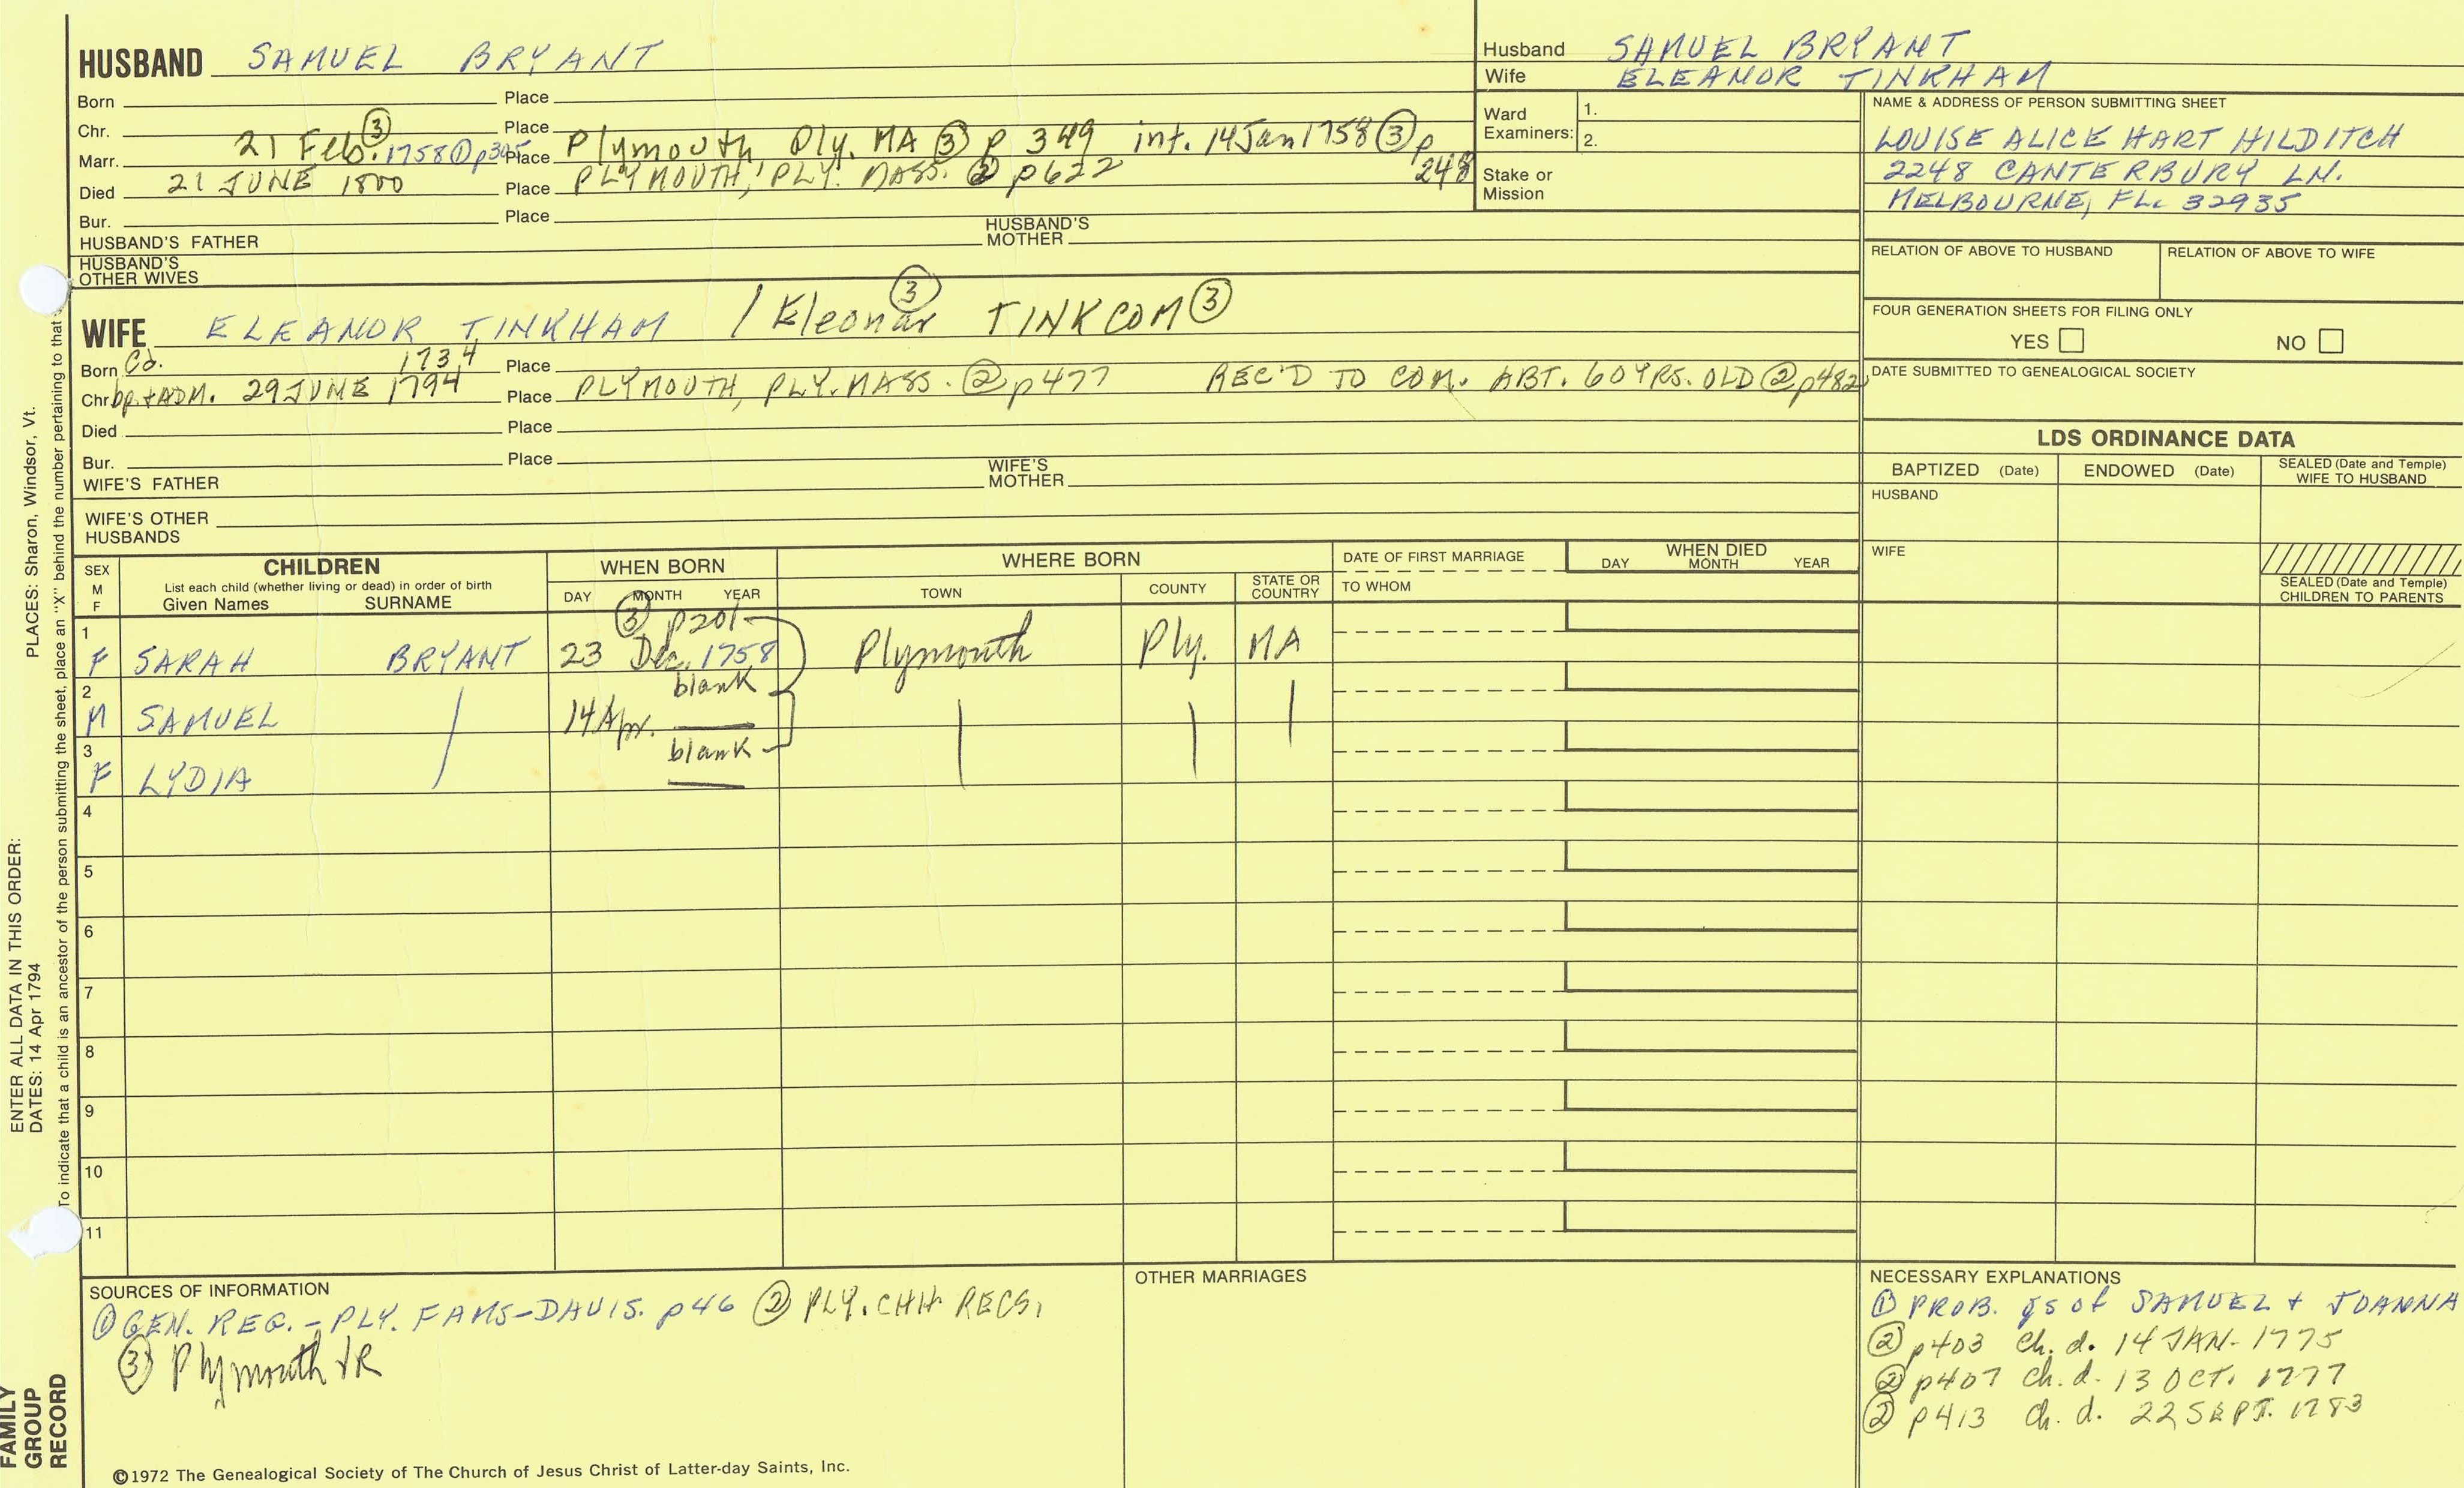 HUSBAND SAMUEL BRYANT
Born Place
Chr. Place
Marr. 21 Feb. ③ 1758 ① p305 Place Plymouth, Ply. MA ③ p 349 int. 14 Jan 1758 ③ p 248
Died 21 JUNE 1800 Place PLYMOUTH, PLY. MASS. ② p622
Bur. Place
HUSBAND'S FATHER HUSBAND'S MOTHER
HUSBAND'S OTHER WIVES
Husband SAMUEL BRYANT
Wife ELEANOR TINKHAM
Ward Examiners: 1.
2.
Stake or Mission
NAME & ADDRESS OF PERSON SUBMITTING SHEET
LOUISE ALICE HART HILDITCH
2248 CANTERBURY LN.
MELBOURNE, FL. 32935
RELATION OF ABOVE TO HUSBAND RELATION OF ABOVE TO WIFE
FOUR GENERATION SHEETS FOR FILING ONLY
YES NO
DATE SUBMITTED TO GENEALOGICAL SOCIETY
WIFE ELEANOR TINKHAM / Eleonar ③ TINKCOM ③
Born Cd. 1734 Place
Chr bp. + ADM. 29 JUNE 1794 Place PLYMOUTH, PLY. MASS. ② p477 REC'D TO COM. ABT. 60 YRS. OLD ② p482
Died Place
Bur. Place
WIFE'S FATHER WIFE'S MOTHER
WIFE'S OTHER HUSBANDS
LDS ORDINANCE DATA
BAPTIZED (Date) ENDOWED (Date) SEALED (Date and Temple) WIFE TO HUSBAND
HUSBAND
WIFE
SEALED (Date and Temple) CHILDREN TO PARENTS
SEX M F
CHILDREN
List each child (whether living or dead) in order of birth
Given Names SURNAME
WHEN BORN
DAY MONTH YEAR
WHERE BORN
TOWN COUNTY STATE OR COUNTRY
DATE OF FIRST MARRIAGE
TO WHOM
WHEN DIED
DAY MONTH YEAR
③ p201
1 F SARAH BRYANT 23 Dec. 1758 Plymouth Ply. MA
2 M SAMUEL / 14 Apr. blank
3 F LYDIA blank
4
5
6
7
8
9
10
11
SOURCES OF INFORMATION
① GEN. REG. - PLY. FAMS - DAVIS. p46 ② PLY. CHH RECS.
③ Plymouth VR
OTHER MARRIAGES
NECESSARY EXPLANATIONS
① PROB. gs of SAMUEL + JOANNA
② p403 Ch. d. 14 JAN. 1775
② p407 Ch. d. 13 OCT. 1777
② p413 Ch. d. 22 SEPT. 1783
©1972 The Genealogical Society of The Church of Jesus Christ of Latter-day Saints, Inc.
FAMILY GROUP RECORD
ENTER ALL DATA IN THIS ORDER:
DATES: 14 Apr 1794
PLACES: Sharon, Windsor, Vt.
To indicate that a child is an ancestor of the person submitting the sheet, place an "X" behind the number pertaining to that